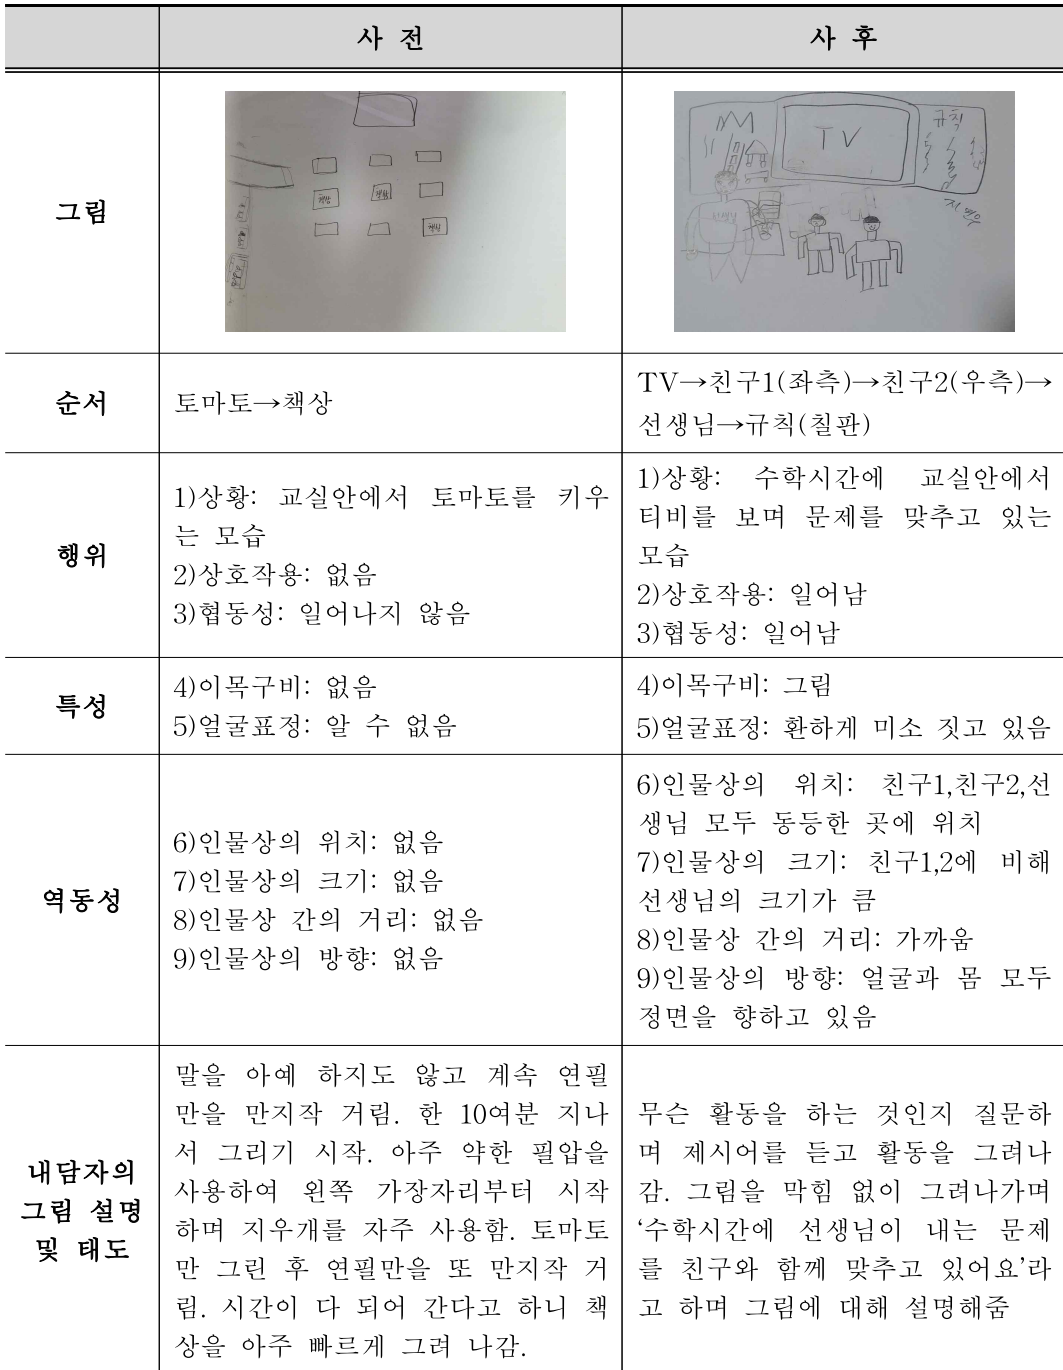 사 전
사 후
그림
책상
책상
책상
TV
규칙
순서
토마토→책상
TV→친구1(좌측)→친구2(우측)→
선생님→규칙(칠판)
행위
1)상황: 교실안에서 토마토를 키우
는 모습
2)상호작용: 없음
3)협동성: 일어나지 않음
1)상황: 수학시간에 교실안에서
티비를 보며 문제를 맞추고 있는
모습
2)상호작용: 일어남
3)협동성: 일어남
특성
4)이목구비: 없음
5)얼굴표정: 알 수 없음
4)이목구비: 그림
5)얼굴표정: 환하게 미소 짓고 있음
역동성
6)인물상의 위치: 없음
7)인물상의 크기: 없음
8)인물상 간의 거리: 없음
9)인물상의 방향: 없음
6)인물상의 위치: 친구1,친구2,선
생님 모두 동등한 곳에 위치
7)인물상의 크기: 친구1,2에 비해
선생님의 크기가 큼
8)인물상 간의 거리: 가까움
9)인물상의 방향: 얼굴과 몸 모두
정면을 향하고 있음
내담자의
그림 설명
및 태도
말을 아예 하지도 않고 계속 연필
만을 만지작 거림. 한 10여분 지나
서 그리기 시작. 아주 약한 필압을
사용하여 왼쪽 가장자리부터 시작
하며 지우개를 자주 사용함. 토마토
만 그린 후 연필만을 또 만지작 거
림. 시간이 다 되어 간다고 하니 책
상을 아주 빠르게 그려 나감.
무슨 활동을 하는 것인지 질문하
며 제시어를 듣고 활동을 그려나
감. 그림을 막힘 없이 그려나가며
‘수학시간에 선생님이 내는 문제
를 친구와 함께 맞추고 있어요’라
고 하며 그림에 대해 설명해줌